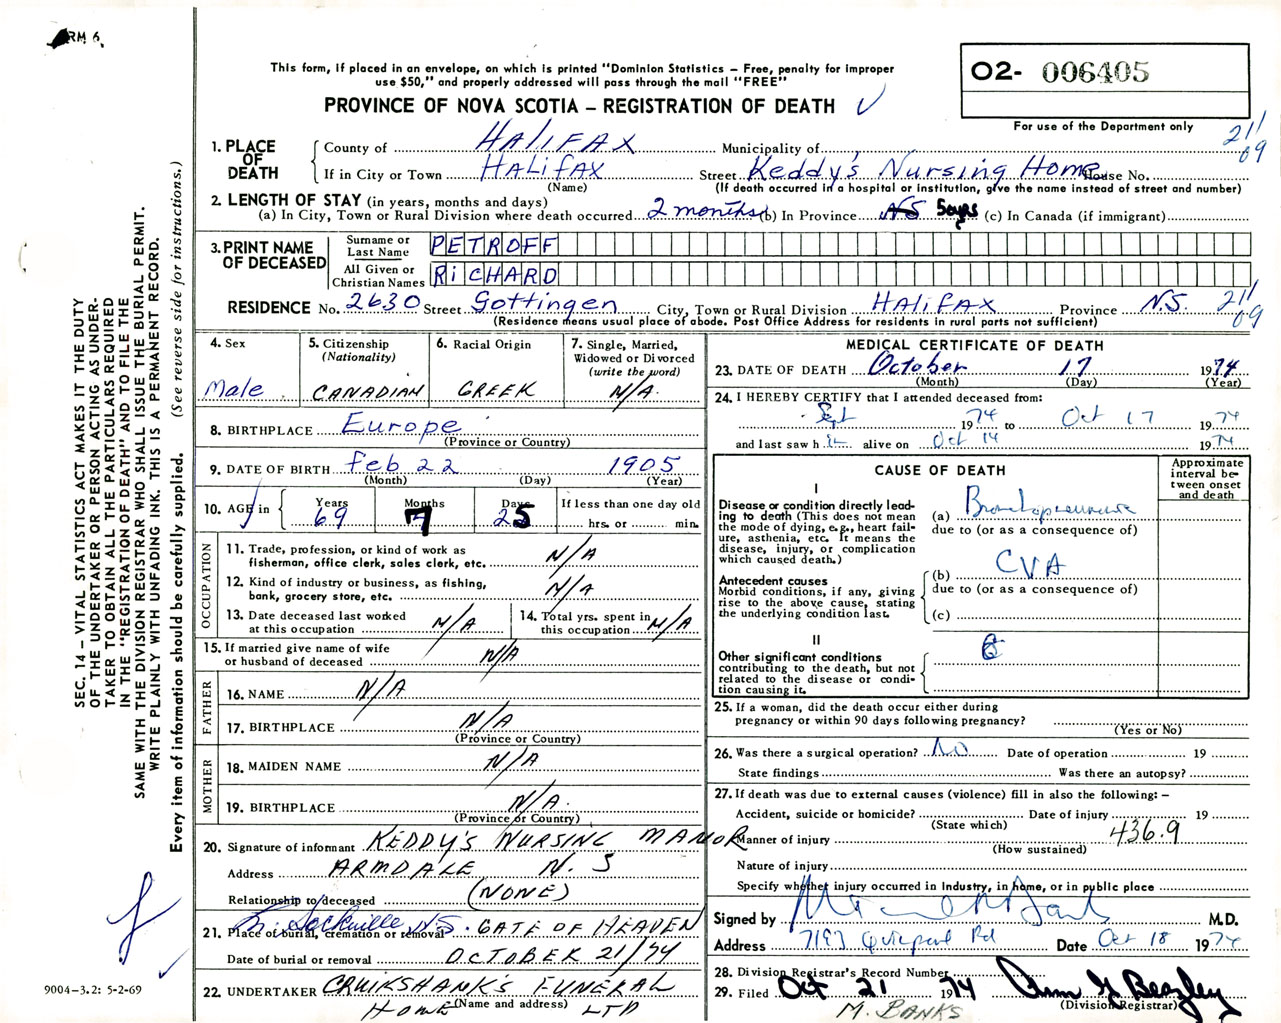 RM 6
This form, if placed in an envelope, on which is printed "Dominion Statistics – Free, penalty for improper
use $50," and properly addressed will pass through the mail "FREE"
PROVINCE OF NOVA SCOTIA – REGISTRATION OF DEATH
O2- 006405
For use of the Department only
211
09
1. PLACE OF DEATH
County of HALIFAX Municipality of
If in City or Town HALIFAX Street Keddy's Nursing Home House No.
(Name) (If death occurred in a hospital or institution, give the name instead of street and number)
2. LENGTH OF STAY (in years, months and days)
(a) In City, Town or Rural Division where death occurred 2 months (b) In Province NS 5 yrs (c) In Canada (if immigrant)
3. PRINT NAME OF DECEASED
Surname or Last Name PETROFF
All Given or Christian Names RICHARD
RESIDENCE No. 2630 Street Gottingen City, Town or Rural Division HALIFAX Province N.S. 211
09
(Residence means usual place of abode. Post Office Address for residents in rural parts not sufficient)
4. Sex
Male
5. Citizenship
(Nationality)
CANADIAN
6. Racial Origin
GREEK
7. Single, Married,
Widowed or Divorced
(write the word)
N/A
8. BIRTHPLACE Europe
(Province or Country)
9. DATE OF BIRTH Feb 22 1905
(Month) (Day) (Year)
10. AGE in
Years 69
Months 7
Days 25
If less than one day old
hrs. or min.
OCCUPATION
11. Trade, profession, or kind of work as
fisherman, office clerk, sales clerk, etc. N/A
12. Kind of industry or business, as fishing,
bank, grocery store, etc. N/A
13. Date deceased last worked
at this occupation N/A
14. Total yrs. spent in
this occupation N/A
15. If married give name of wife
or husband of deceased N/A
FATHER
16. NAME N/A
17. BIRTHPLACE N/A
(Province or Country)
MOTHER
18. MAIDEN NAME N/A
19. BIRTHPLACE N/A.
(Province or Country)
20. Signature of informant KEDDY'S NURSING MANOR
Address ARMDALE N.S
Relationship to deceased (NONE)
21. Place of burial, cremation or removal Sackville N.S. GATE OF HEAVEN
Date of burial or removal OCTOBER 21/74
22. UNDERTAKER CRUIKSHANK'S FUNERAL
(Name and address)
HOME LTD
MEDICAL CERTIFICATE OF DEATH
23. DATE OF DEATH October 17 1974
(Month) (Day) (Year)
24. I HEREBY CERTIFY that I attended deceased from:
Sept 1974 to Oct 17 1974
and last saw h alive on Oct 14 1974
CAUSE OF DEATH
Approximate
interval be-
tween onset
and death
I
Disease or condition directly lead-
ing to death (This does not mean
the mode of dying, e.g., heart fail-
ure, asthenia, etc. It means the
disease, injury, or complication
which caused death.)
(a) Bronchopneumonia
due to (or as a consequence of)
Antecedent causes
Morbid conditions, if any, giving
rise to the above cause, stating
the underlying condition last.
(b) CVA
due to (or as a consequence of)
(c)
II
Other significant conditions
contributing to the death, but not
related to the disease or condi-
tion causing it.
25. If a woman, did the death occur either during
pregnancy or within 90 days following pregnancy?
(Yes or No)
26. Was there a surgical operation? No Date of operation 19
State findings Was there an autopsy?
27. If death was due to external causes (violence) fill in also the following: –
Accident, suicide or homicide? Date of injury 19
(State which)
Manner of injury 436.9
(How sustained)
Nature of injury
Specify whether injury occurred in industry, in home, or in public place
Signed by M.D.
Address 7193 Quinpool Rd Date Oct 18 1974
28. Division Registrar's Record Number
29. Filed Oct 21 1974
(Division Registrar)
M. BANKS
SEC. 14 – VITAL STATISTICS ACT MAKES IT THE DUTY
OF THE UNDERTAKER OR PERSON ACTING AS UNDER-
TAKER TO OBTAIN ALL THE PARTICULARS REQUIRED
IN THE "REGISTRATION OF DEATH" AND TO FILE THE
SAME WITH THE DIVISION REGISTRAR WHO SHALL ISSUE THE BURIAL PERMIT.
WRITE PLAINLY WITH UNFADING INK. THIS IS A PERMANENT RECORD.
Every item of information should be carefully supplied. (See reverse side for instructions.)
9004-3.2: 5-2-69